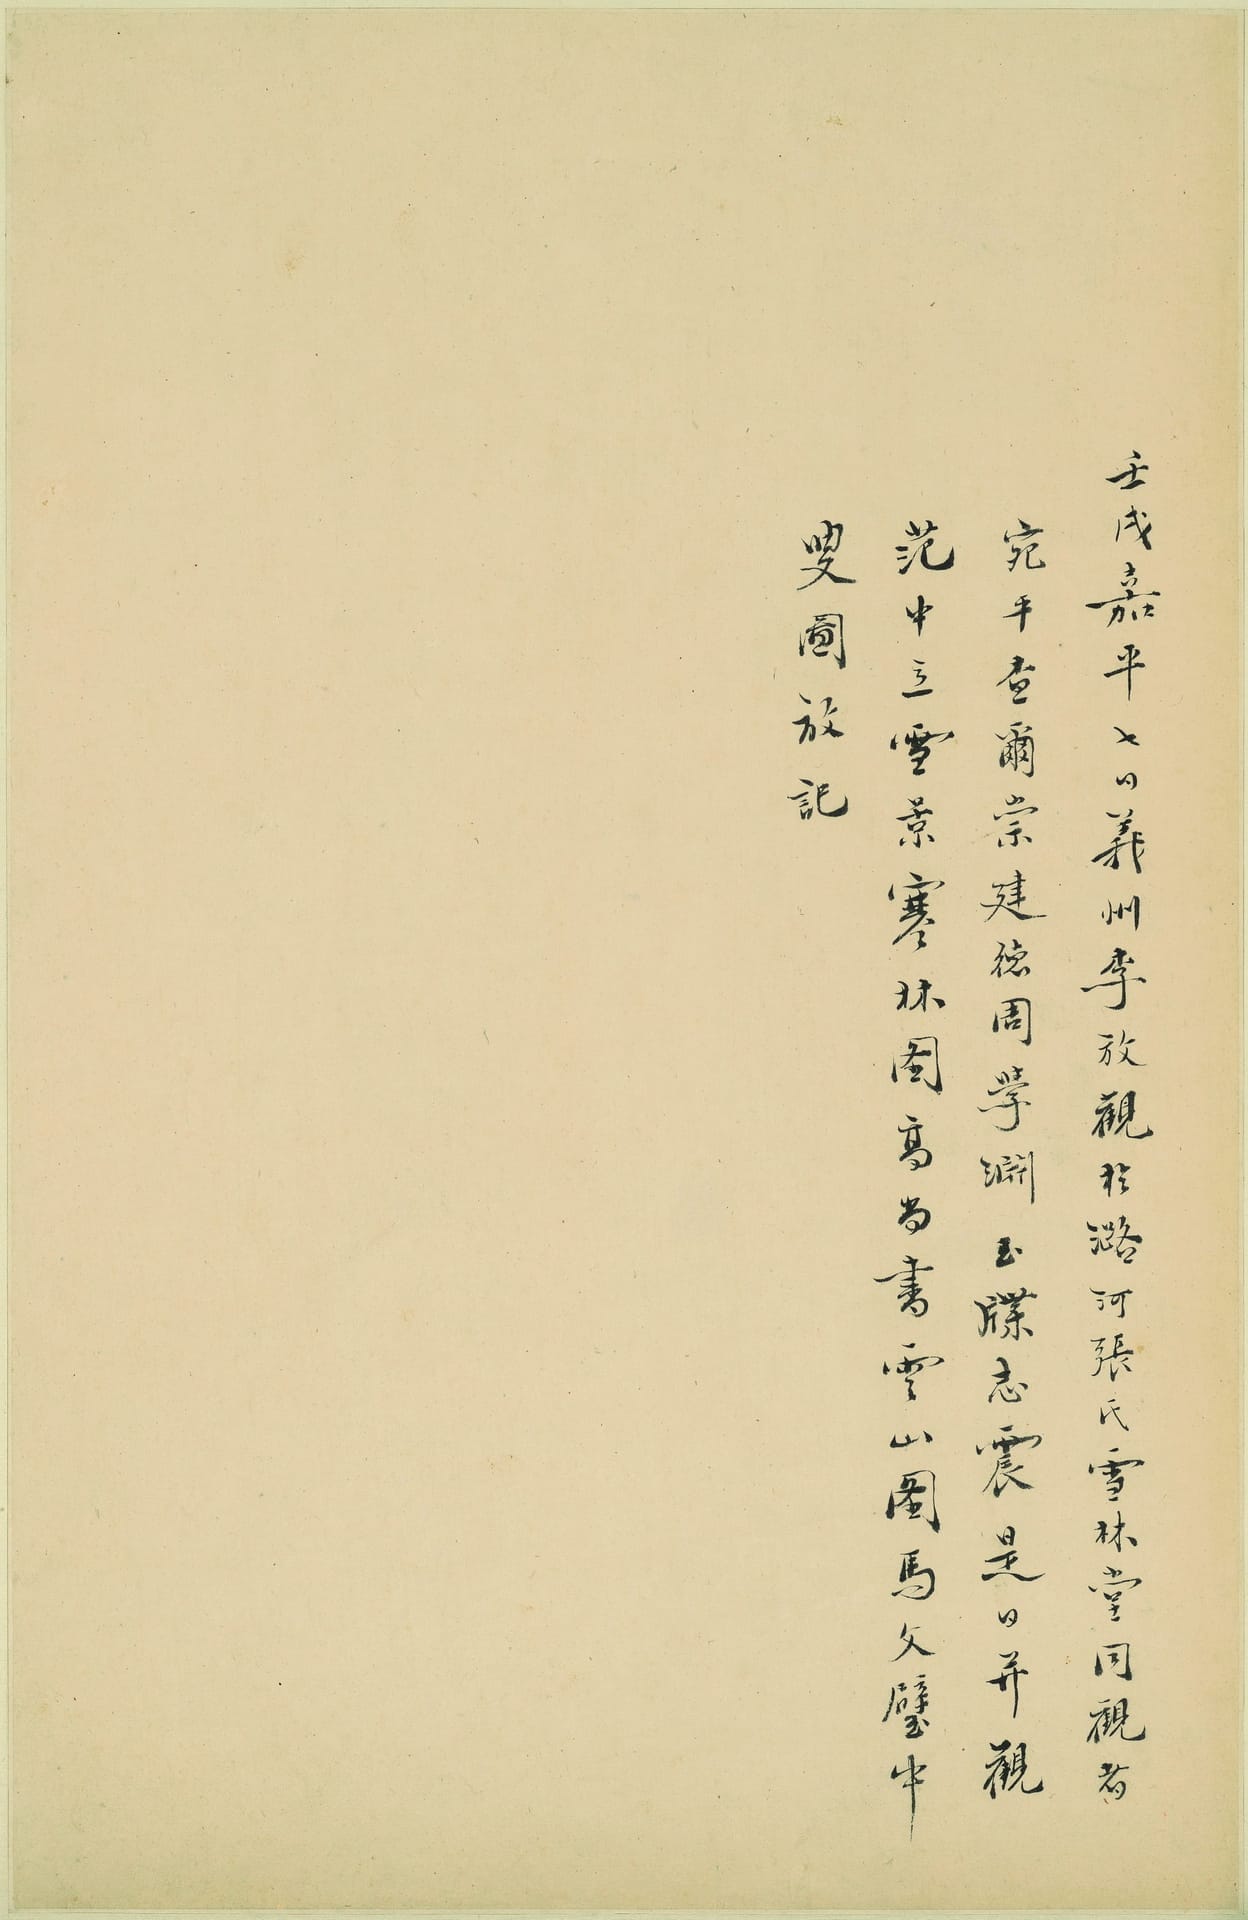 壬戌嘉平七日義州李放觀於潞河張氏雪林堂同觀者
宛平查爾崇建德周學淵玉牒志震是日并觀
范中立雪景寒林图高尚書雲山图馬文璧中
叟圖放記